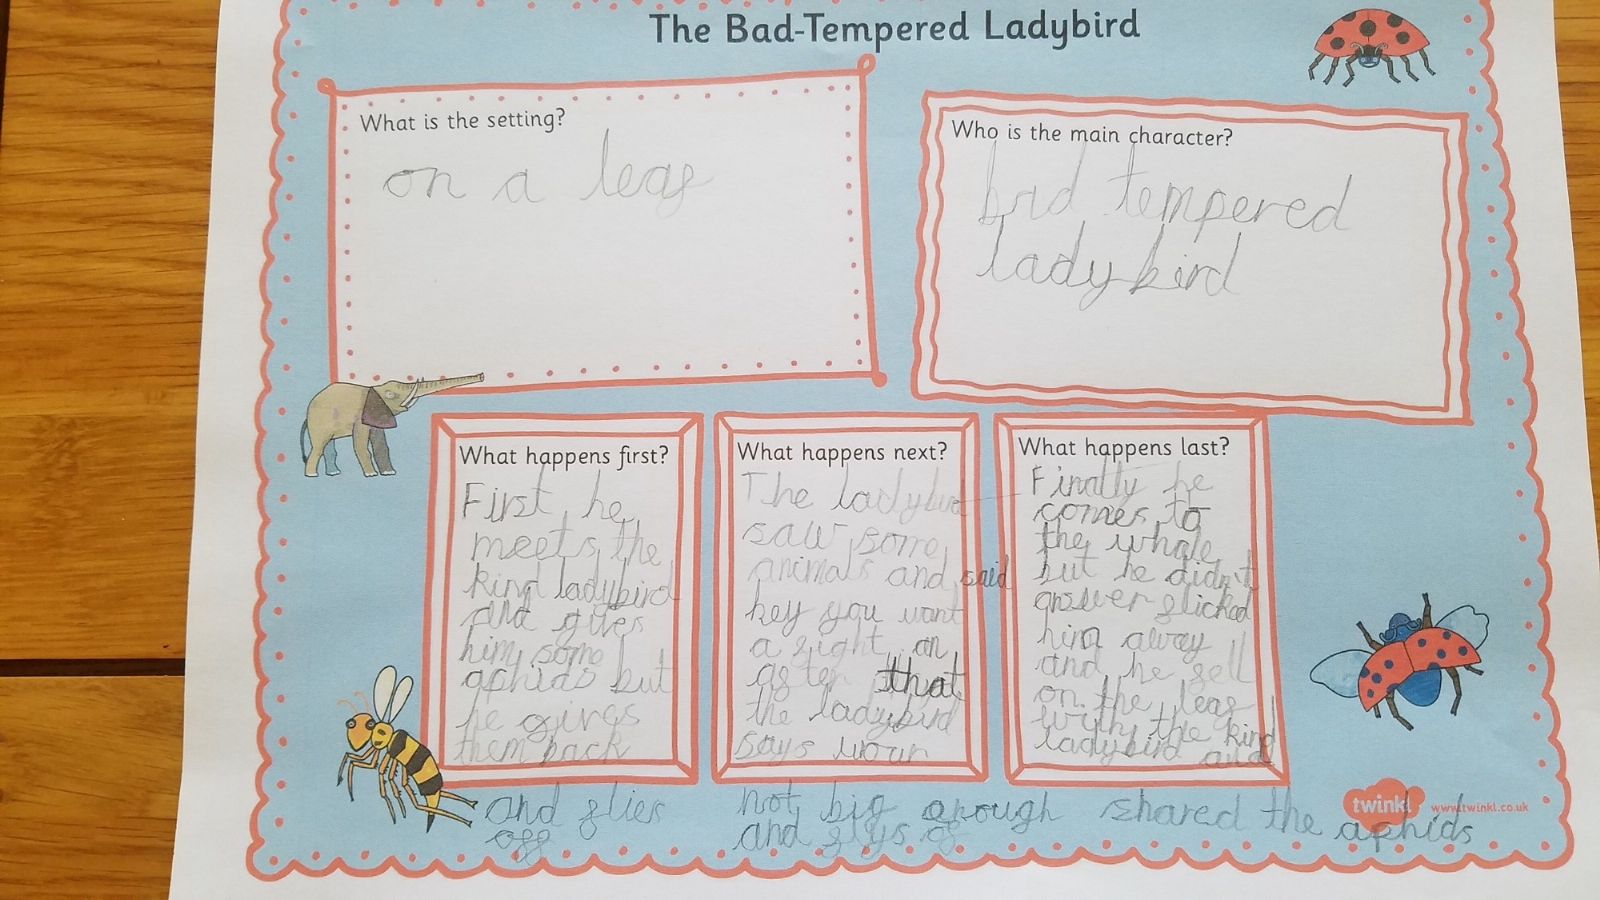 The Bad-Tempered Ladybird
What is the setting?
on a leaf
Who is the main character?
bad tempered
ladybird
What happens first?
First he
meets the
kind ladybird
and gives
him some
aphids but
he gives
them back
and flies
off
What happens next?
The ladybird
saw some
animals and said
hey you want
a fight an
after that
the ladybird
says wour
not big enough
and flys of
What happens last?
Finally he
comes to
the whale
but he didn't
answer flicked
him away
and he fell
on the leaf
with the kind
ladybird and
shared the aphids
twinkl www.twinkl.co.uk